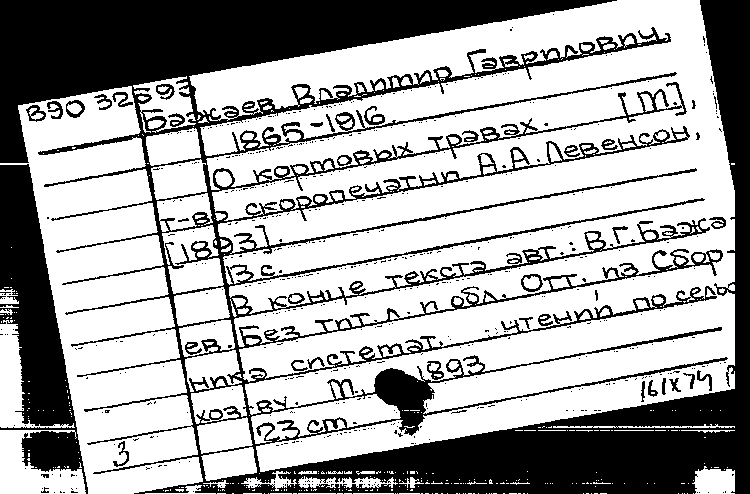 В90 32593
Бажаев, Владимир Гаврилович,
1865-1916.
О кормовых травах. [М.],
т-во скоропечатни А.А.Левенсон,
[1893].
13 с.
В конце текста авт.: В.Г.Бажа-
ев. Без тит. л. и обл. Отт. из Сбор-
ника системат. чтений по сельс
хоз-ву. М., 1893
23 см.
161х74
3